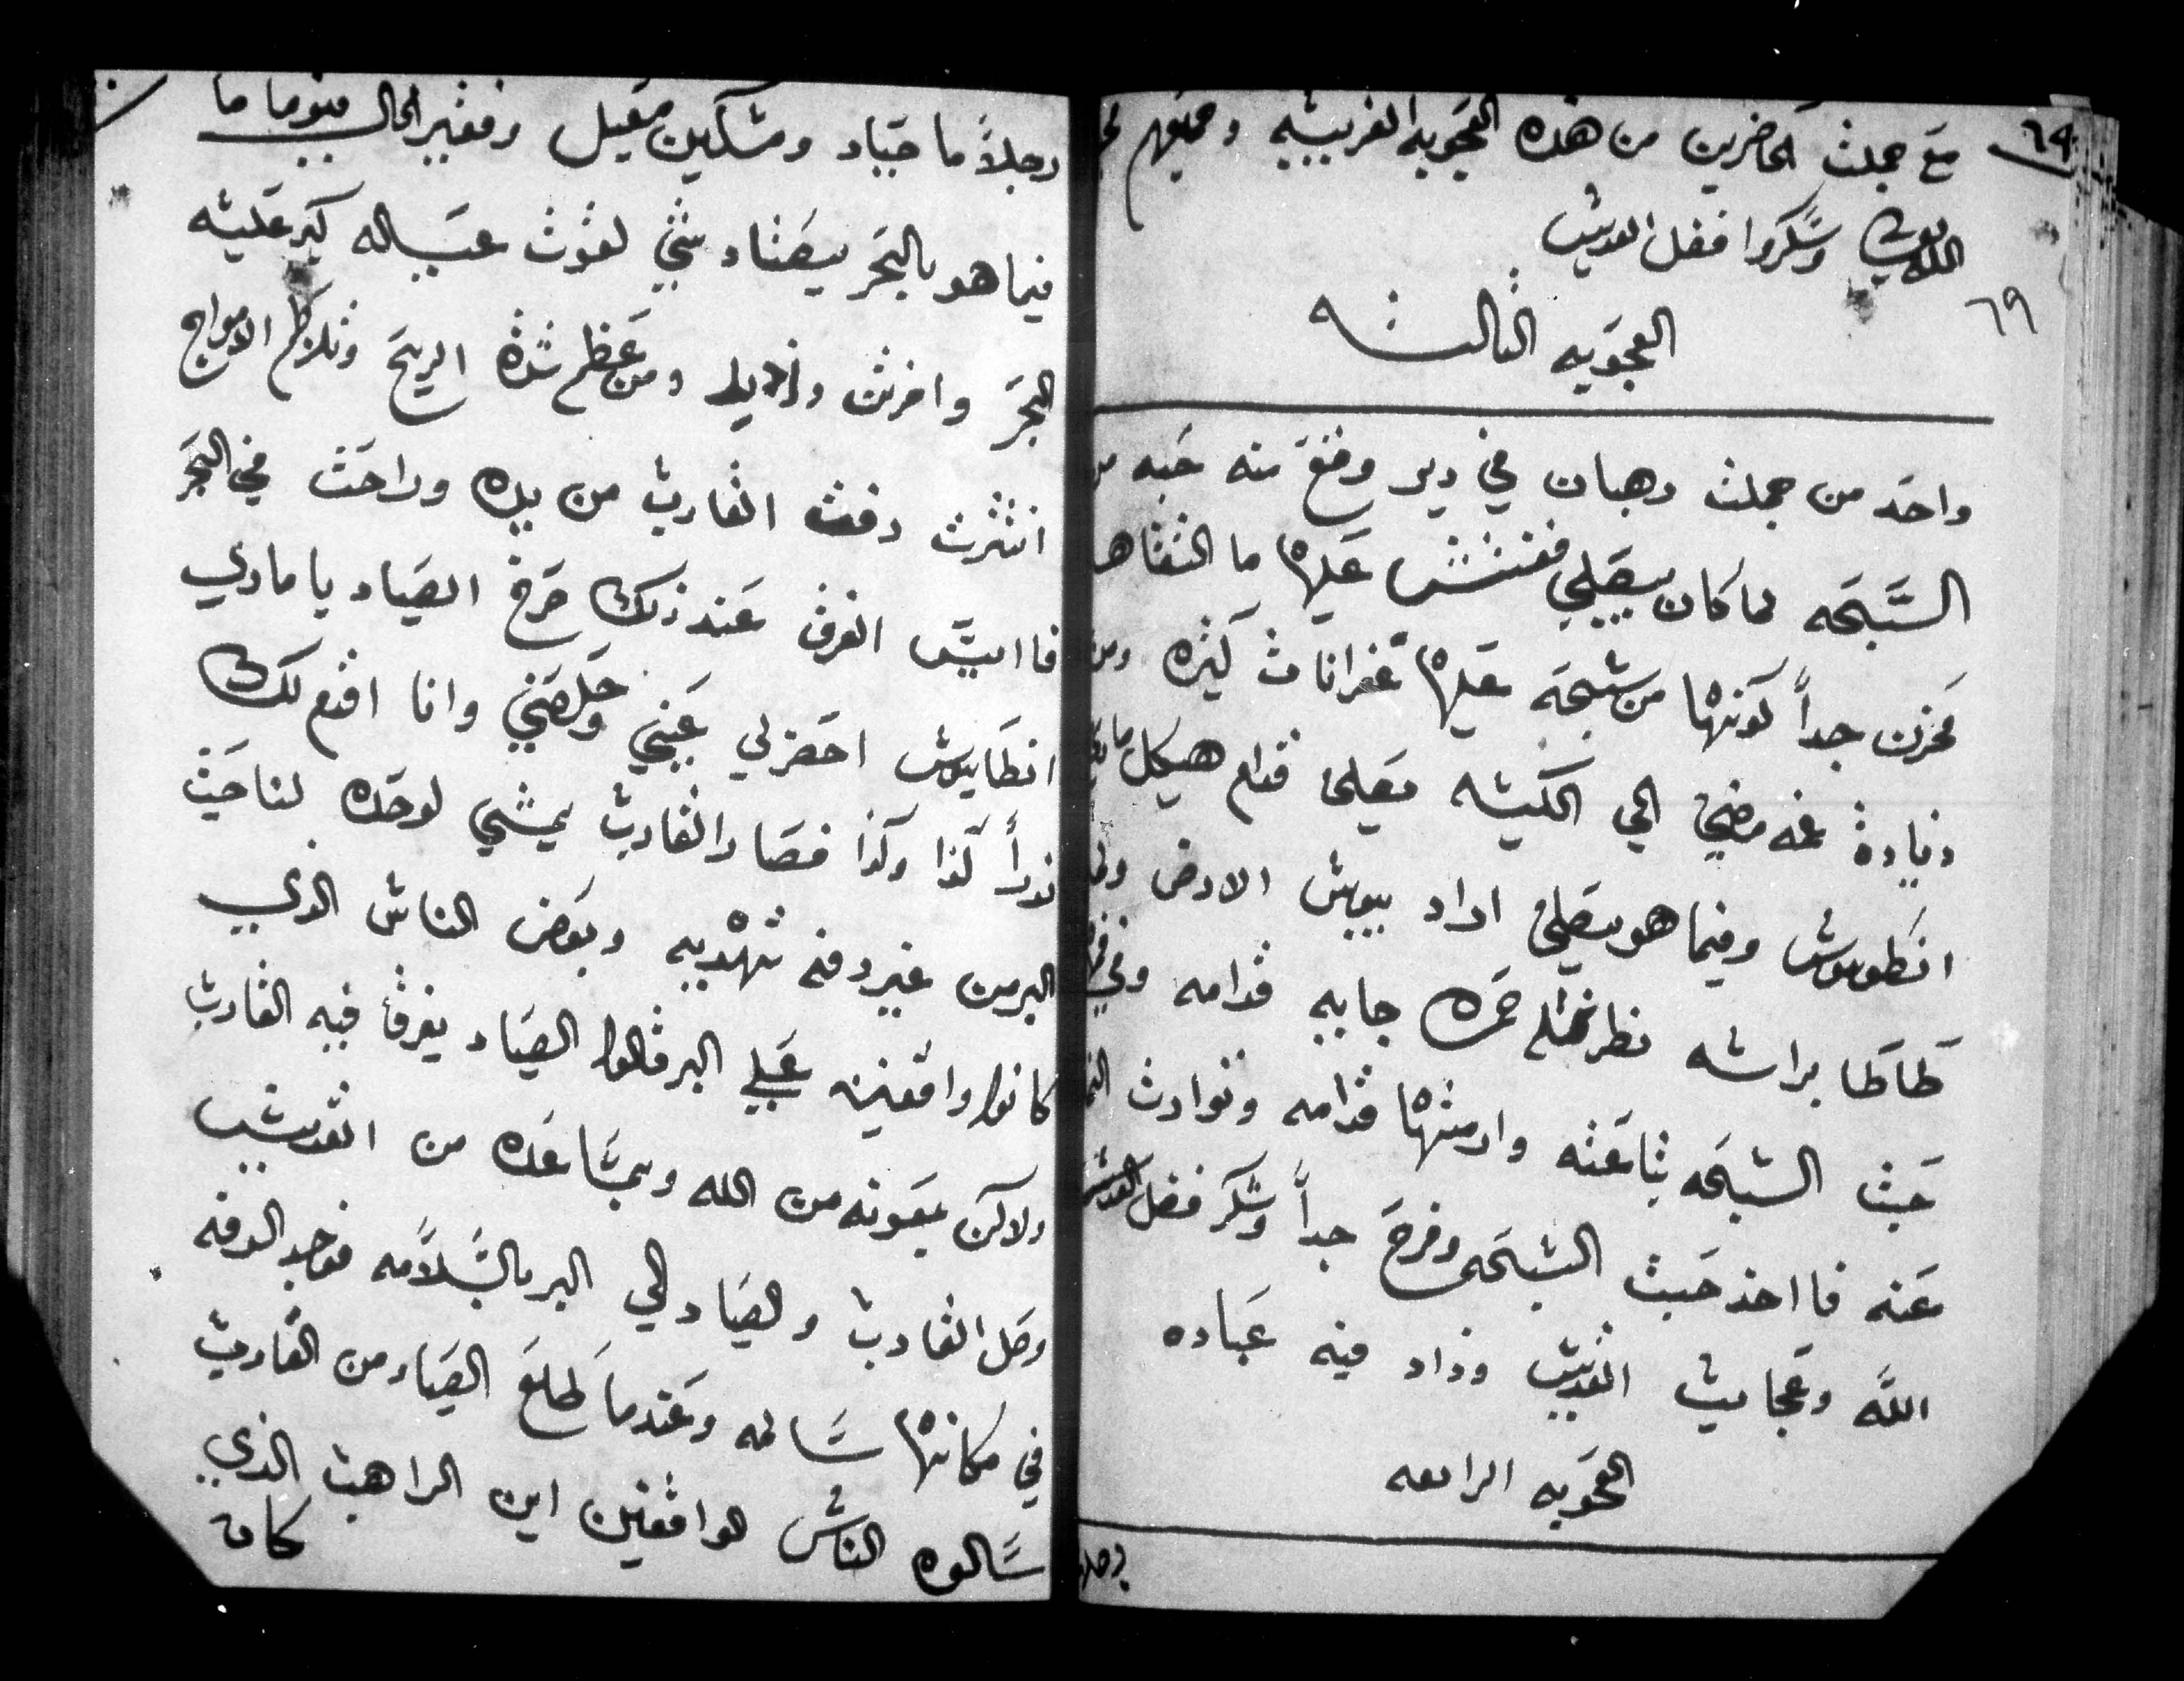 ٦٩
مع جملت الحاضرين من هذه العجوبه الغريبه وجميعهم
الله وشكروا فضل القديس
٦٩
العجوبه الثالثه
واحد من جملت رهبان في دير وقع منه حبه من
السبحه لما كان بيصلي ففتش عليها ما التقاها
فحزن جداً كونها من سبحه عليها غفرانات كثيره ومن
زيادة غمه مضى الي الكنيسه يصلي قدام هيكل مار
انطونيوس وفيما هو يصلي اراد يبوس الارض ولما
طاطا براسه نظر نمله جايبه قدامه وفي
حبث السبحه بتاعته وارمتها قدامه وتوارت
عنه فااخذ حبث السبحه وفرح جداً وشكر فضل
الله وعجايب القديس وزاد فيه عباده
العجوبه الرابعه
رجلاً
رجلاً ما صياد ومسكين وفقير الحال فيوما ما
فيما هو بالبحر يصتاد شي لقوت عياله كبر عليه
البحر ومن عظم شدة الريح وتلاطم الامواج
انتثرت دفت القارب من يده وراحت في البحر
فاايس الغرق عند ذلك صرخ الصياد يا ماري
انطانيوس احضر لي عيني وخلصني وانا اقدم لك
نذراً كذا وكذا فصار القارب يمشي لوحده لناحيت
البر من غير دفه تهديه وبعض الناس الذي
كانوا واقفين علي البر قالوا الصياد يغرق فيه القارب
ولاكن بمعونه من الله وبمساعده من القديس
وصل القارب والصياد الي البر بالسلامه فوجد الدفه
في مكانها سالمه وعندما طلع الصياد من القارب
سالوه الناس الواقفين اين الراهب الذي
كان